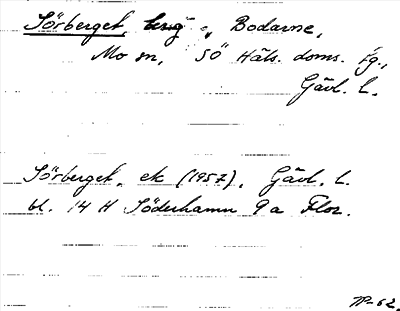 Sörberget, berg ", Bodarne,
Mo sn, SÖ Häls. doms. fg.,
Gävl. L.
Sörberget, ek (1957), Gävl. L.
bl. 14 H Söderhamn 9 a Flor.
-62.